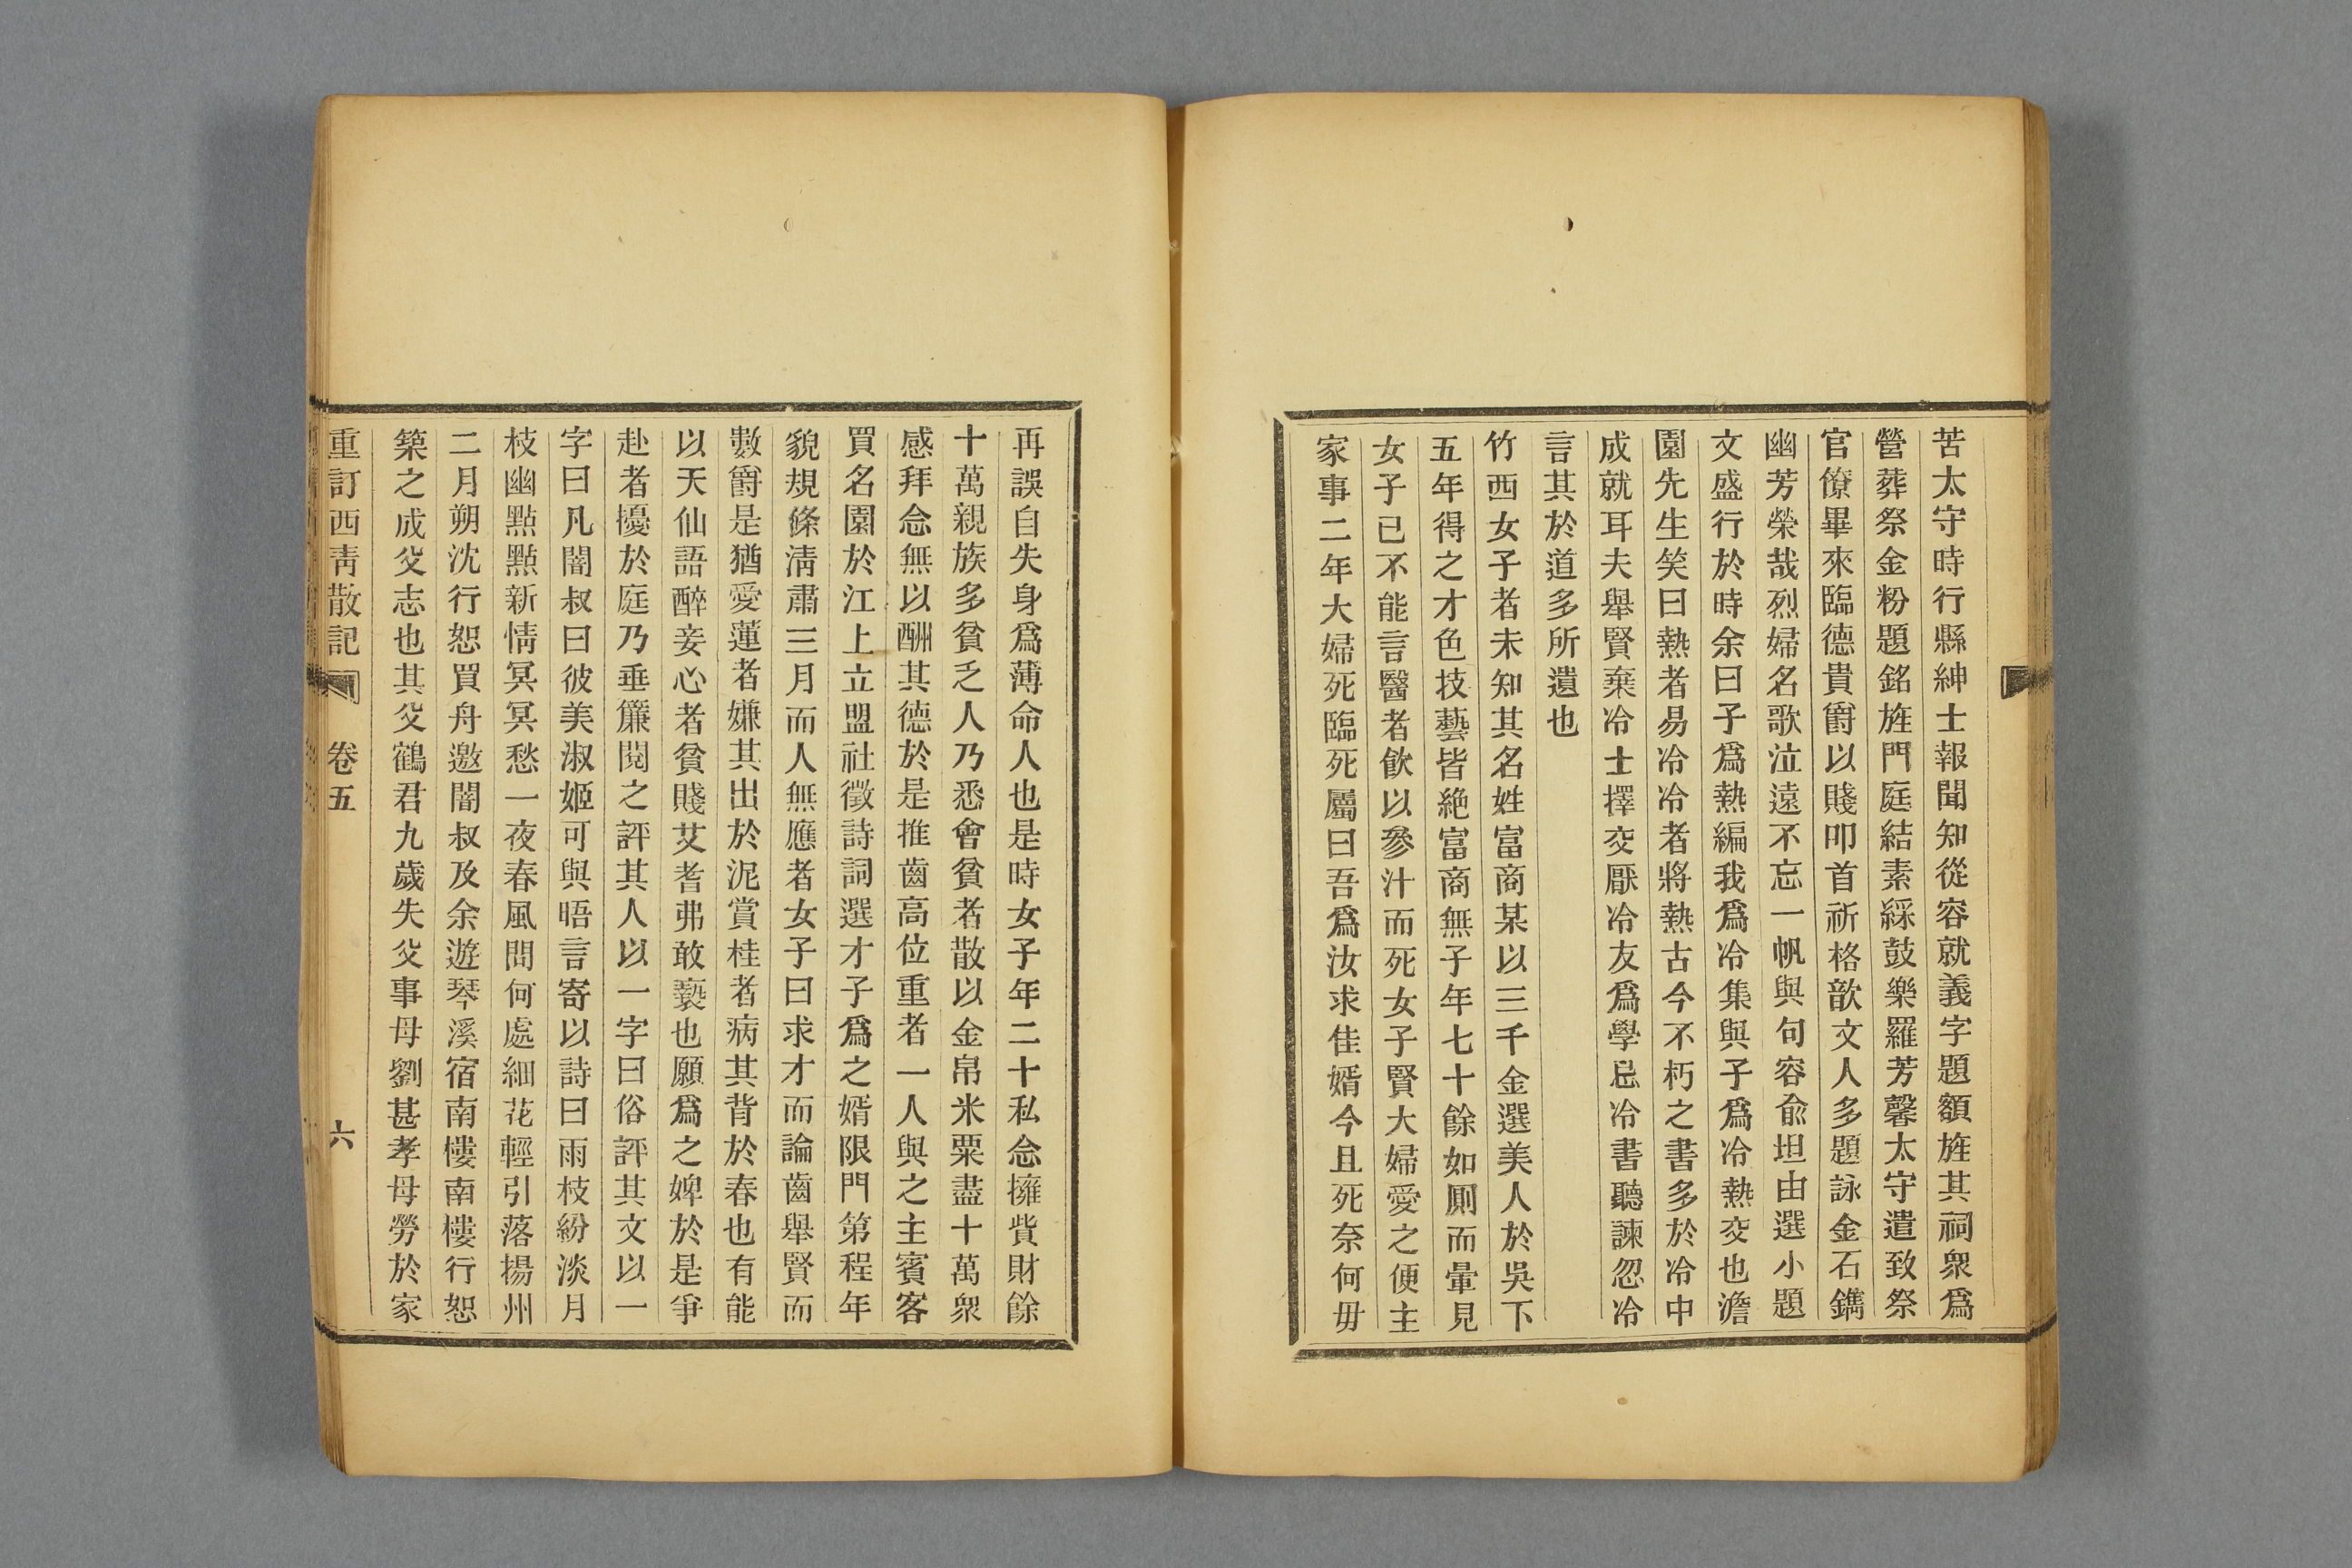 苦太守時行縣紳士報聞知從容就義字題額旌其祠衆爲
營葬祭金粉題銘旌門庭結素綵鼓樂羅芳馨太守遣致祭
官僚畢來臨德貴爵以賤叩首祈格歆文人多題詠金石鐫
幽芳榮哉烈婦名歌泣遠不忘一帆與句容俞坦由選小題
文盛行於時余曰子爲熱編我爲冷集與子爲冷熱交也澹
園先生笑曰熱者易冷冷者將熱古今不朽之書多於冷中
成就耳夫舉賢棄冷士擇交厭冷友爲學忌冷書聽諫忽冷
言其於道多所遺也
竹西女子者未知其名姓富商某以三千金選美人於吳下
五年得之才色技藝皆絶富商無子年七十餘如厠而暈見
女子已不能言醫者飲以參汁而死女子賢大婦愛之便主
家事二年大婦死臨死屬曰吾爲汝求佳婿今且死奈何毋
再誤自失身爲薄命人也是時女子年二十私念擁貲財餘
十萬親族多貧乏人乃悉會貧者散以金帛米粟盡十萬衆
感拜念無以酬其德於是推齒高位重者一人與之主賓客
買名園於江上立盟社徵詩詞選才子爲之婿限門第程年
貌規條淸肅三月而人無應者女子曰求才而論齒舉賢而
數爵是猶愛蓮者嫌其出於泥賞桂者病其背於春也有能
以天仙語醉妾心者貧賤艾耆弗敢褻也願爲之婢於是爭
赴者擾於庭乃垂簾閱之評其人以一字曰俗評其文以一
字曰凡闇叔曰彼美淑姬可與晤言寄以詩曰雨枝紛淡月
枝幽點點新情冥冥愁一夜春風問何處細花輕引落揚州
二月朔沈行恕買舟邀闇叔及余遊琴溪宿南樓南樓行恕
築之成父志也其父鶴君九歲失父事母劉甚孝母勞於家
重訂西靑散記 卷五 六